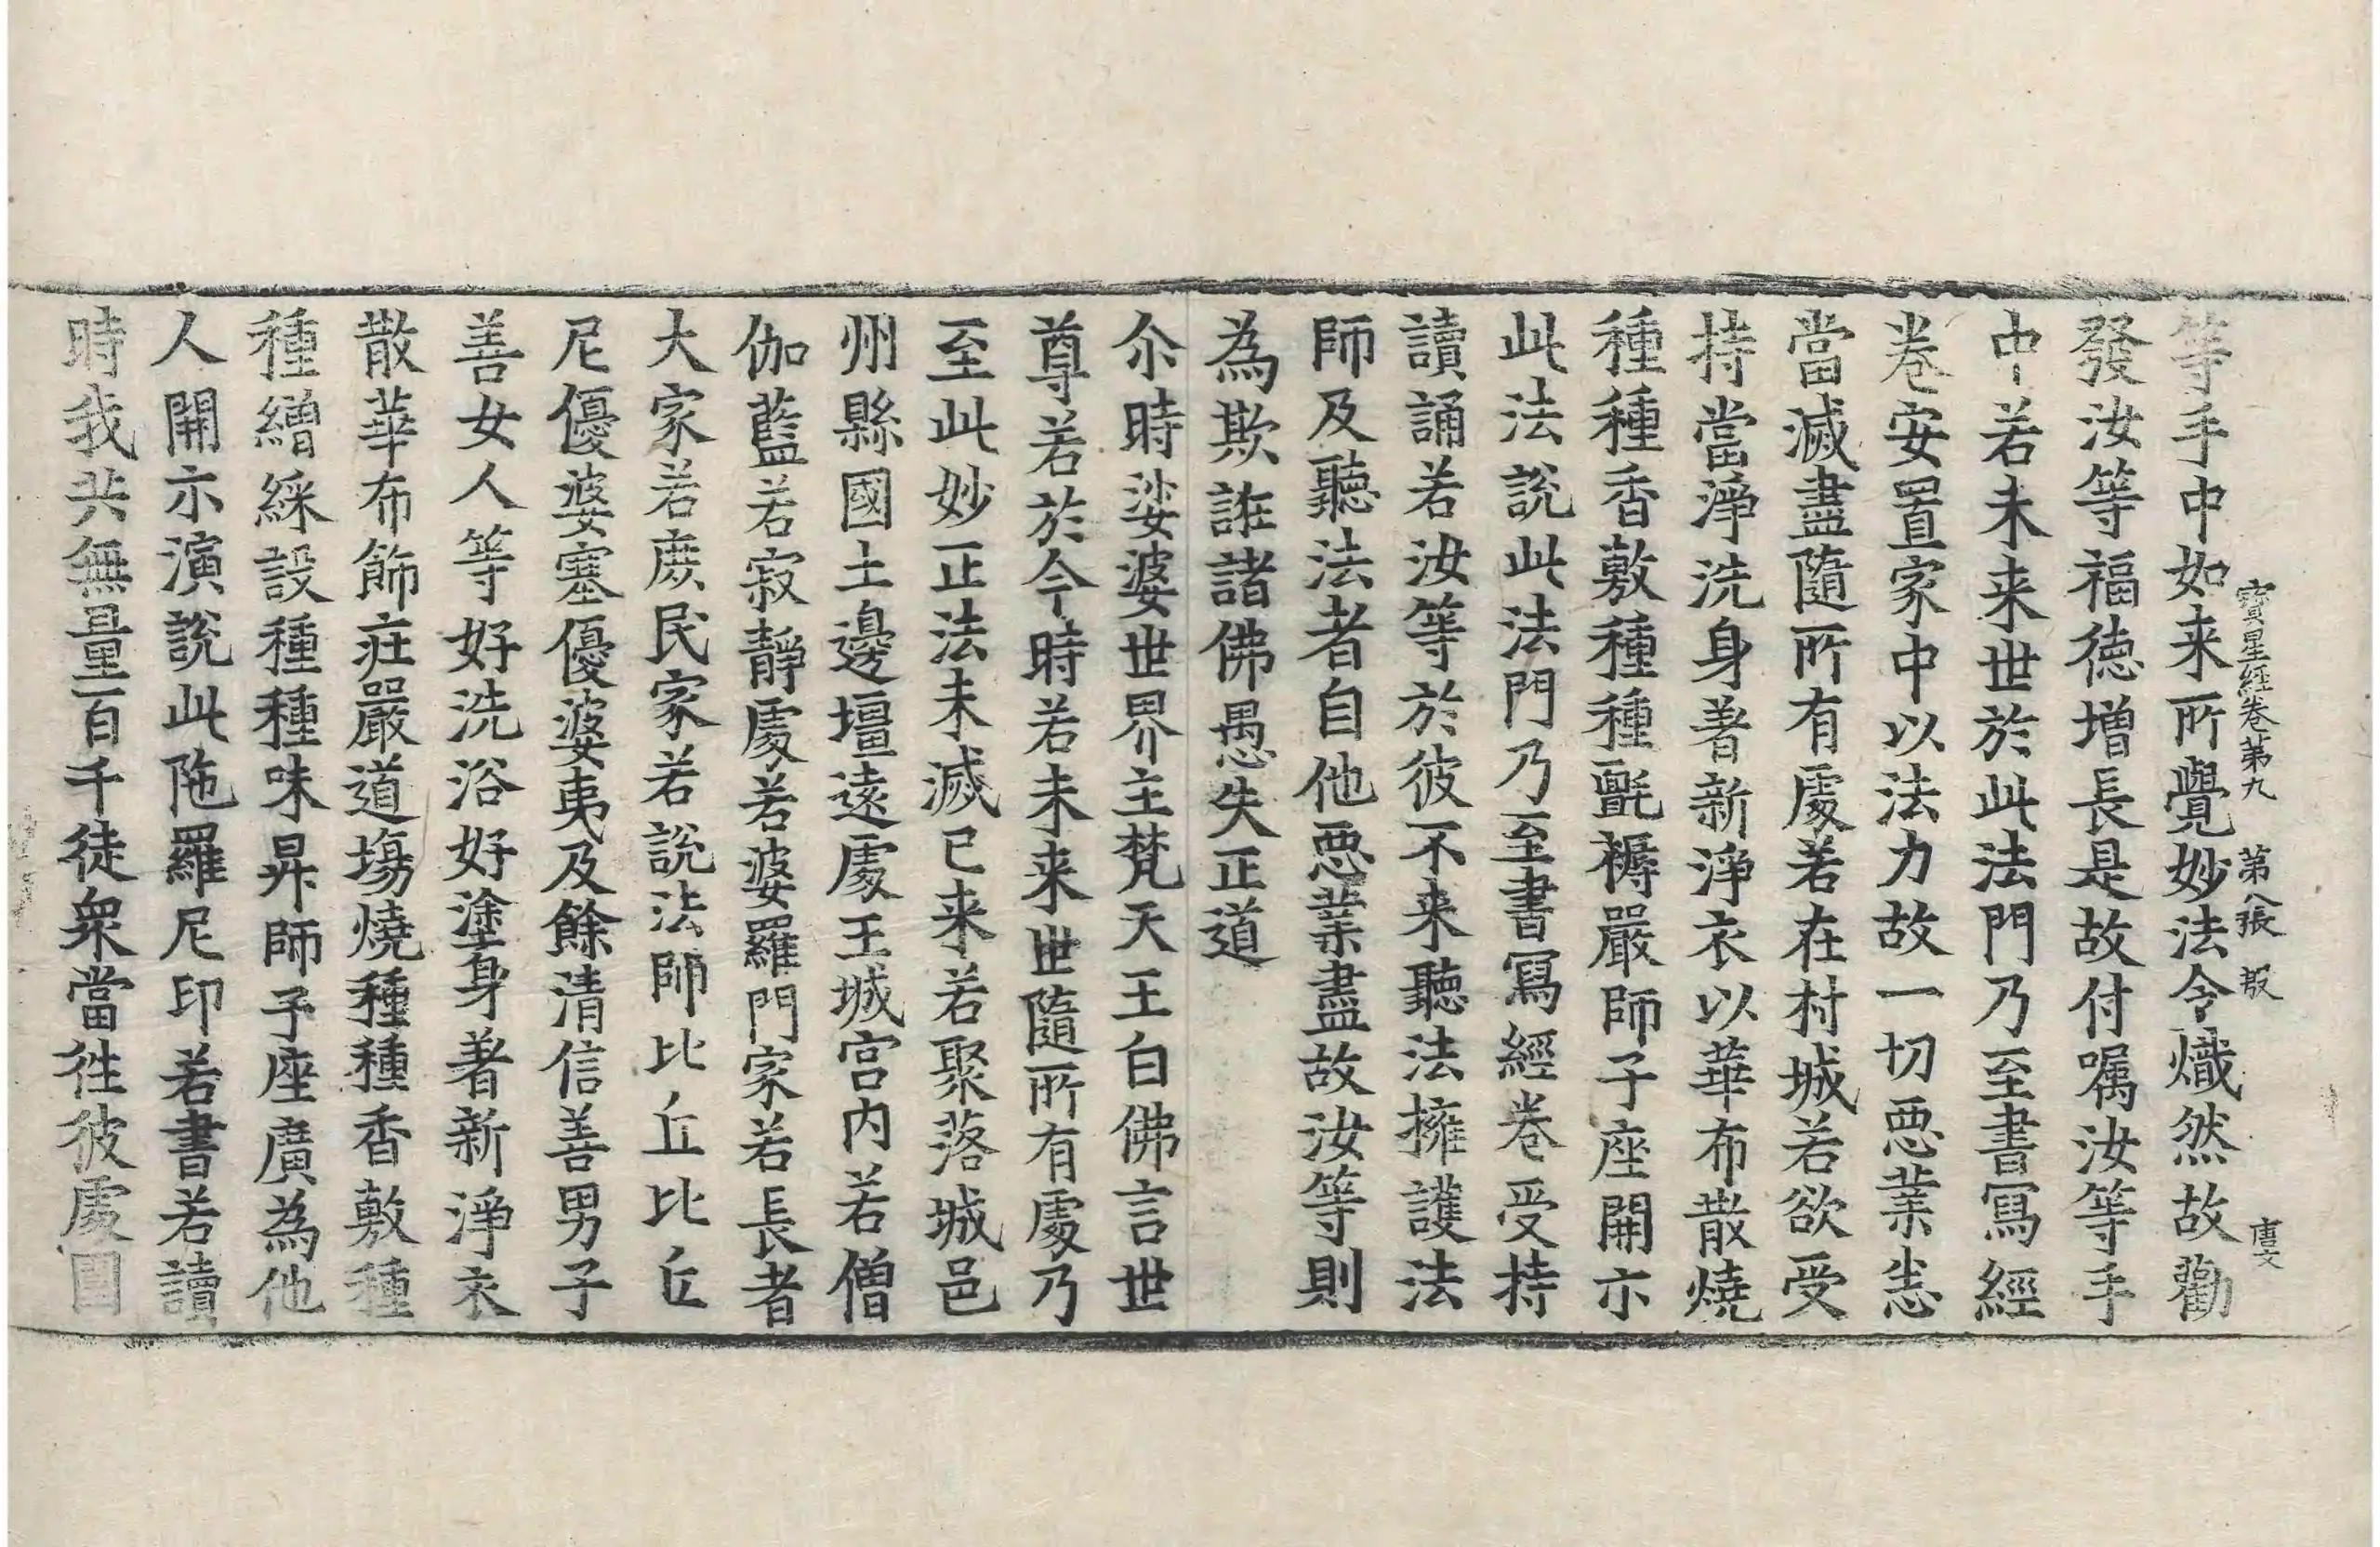 等手中如来所覺妙法令熾然故勸
寶星經卷第九 第八張 報 唐文
發汝等福德增長是故付嘱汝等手
中若未来世於此法門乃至書寫經
卷安置家中以法力故一切惡業悉
當滅盡隨所有處若在村城若欲受
持當淨洗身著新淨衣以華布散燒
種種香敷種種氍褥嚴師子座開示
此法說此法門乃至書寫經卷受持
讀誦若汝等於彼不来聽法擁護法
師及聽法者自他惡業盡故汝等則
為欺誑諸佛愚失正道
尒時娑婆世界主梵天王白佛言世
尊若於今時若未来世隨所有處乃
至此妙正法未滅已来若聚落城邑
州縣國土邊壃遠處王城宮内若僧
伽藍若寂靜處若婆羅門家若長者
大家若庶民家若說法師比丘比丘
尼優婆塞優婆夷及餘清信善男子
善女人等好洗浴好塗身著新淨衣
散華布飾莊嚴道場燒種種香敷種
種繒綵設種種味昇師子座廣為他
人開示演說此陁羅尼印若書若讀
時我共無量百千徒衆當往彼處圓